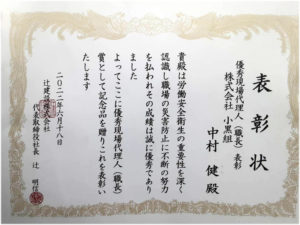 表彰状
優秀現場代理人(職長)表彰
株式会社 小黒組
中村 健 殿
貴殿は労働安全衛生の重要性を深く
認識し職場の災害防止に不断の努力
を払われその成績は誠に優秀であり
ました
よってここに優秀現場代理人(職長)
賞として記念品を贈りこれを表彰い
たします
二〇二二年六月十八日
辻建設株式会社
代表取締役社長 辻 明信